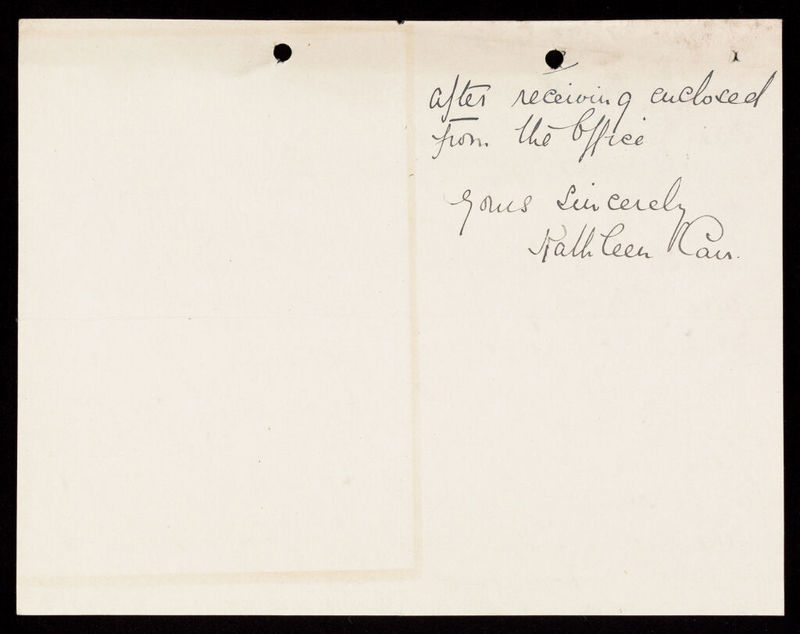 after receiving enclosed
from the Office
Yours Sincerely
Kathleen Carr.